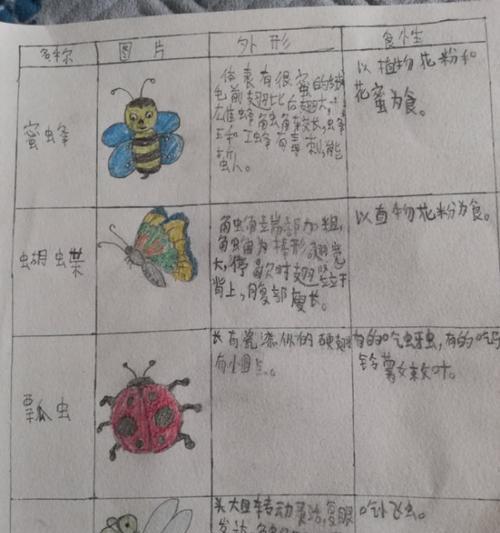 名称 图片 外形 食性
蜜蜂
体表有很蜜的绒
毛前翅比后翅大,
雄蜂触角较长,蜂
王和工蜂有毒刺,能
蜇人。
以植物花粉和
花蜜为食。
蝴蝶
触角端部加粗,
翅宽
大,停歇时翅竖立于
背上,腹部瘦长。
以直物花粉为食。
瓢虫
长有瓷漆似的硬翅
有小圆点。
有的吃蚜虫,有的吃马
铃薯嫩叶。
头大且转动灵活,复眼
发达
吃小飞虫。